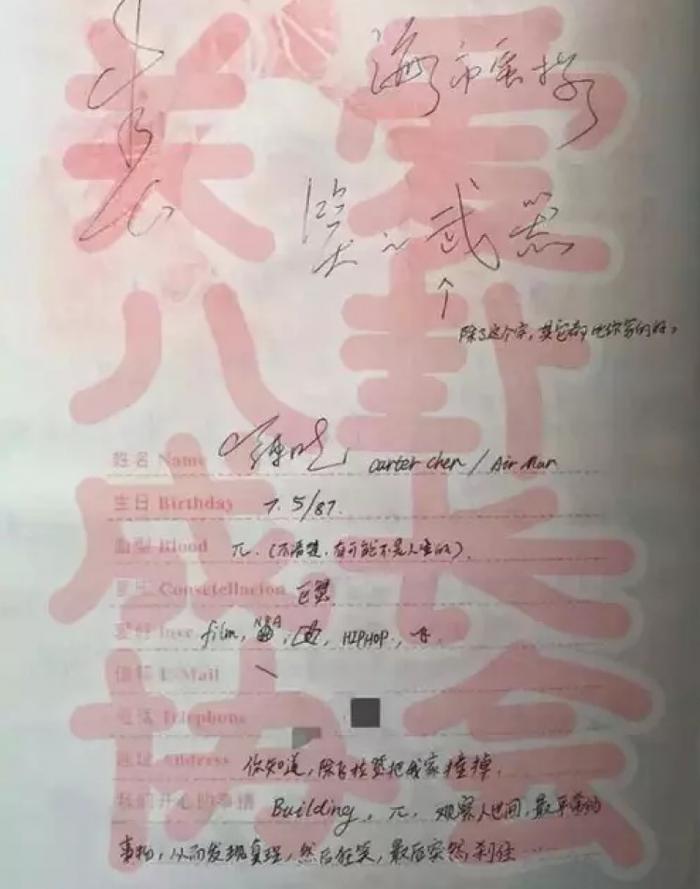 关爱
八卦
成长
协会
海市蜃楼
哭之武器
↑
除了这个字,其它都比你写的好。
姓名 Name Carter Chen / Air Man
生日 Birthday 7.5/87.
血型 Blood π.(不清楚,有可能不是人生的).
星座 Constellation 巨蟹
爱好 love film, NBA, HIPHOP,
信箱 E-Mail \
电话 Telephone
地址 Address 你知道,除了拉登把我家撞掉.
我的开心的事情 Building, π, 观察人世间,最平常的
事物,从而发现真理,然后狂笑,最后突然刹住